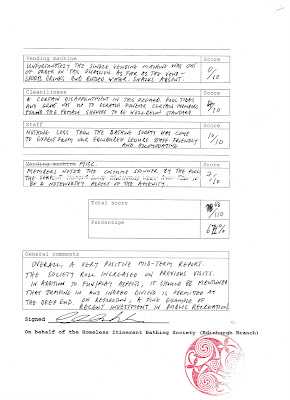 Vending machine Score
UNFORTUNATELY THE SINGLE VENDING MACHINE WAS OUT
OF ORDER ON THIS OCCASION. AS FAR AS THE VEND-
DRINKS AND WATER. SNACKS ABSENT.
0/10
Cleanliness Score
A CERTAIN DISAPPOINTMENT IN THIS REGARD. POOL SIDES
AND NOT UP TO SCRATCH. HOWEVER CERTAIN MEMBERS
FOUND THE FEMALE SHOWERS TO BE STANDARD
/10
Staff Score
NOTHING LESS THAN THE BATHING SOCIETY HAS COME
TO EXPECT FROM OUR LEISURE STAFF-FRIENDLY
AND ACCOMODATING
10/10
Vending machine MISC. Score
MEMBERS NOTED THE COSTUME SPINNER BY THE POOL
BE A NOTEWORTHY ASPECT OF THE AMENITY.
/10
Total score
/110
Percentage
%
General comments
OVERALL, A VERY POSITIVE MID-TERM REPORT.
THE SOCIETY ROLL INCREASED ON PREVIOUS VISITS.
IN ADDITION TO FUN/PLAY ASPECTS, IT SHOULD BE MENTIONED
THAT JUMPING IN AND INDEED DIVING IS PERMITTED AT
THE DEEP END. ON REFLECTION, A FINE EXAMPLE OF
RECENT INVESTMENT IN PUBLIC RECREATION.
Signed
On behalf of the Homeless Itinerant Bathing Society (Edinburgh Branch)